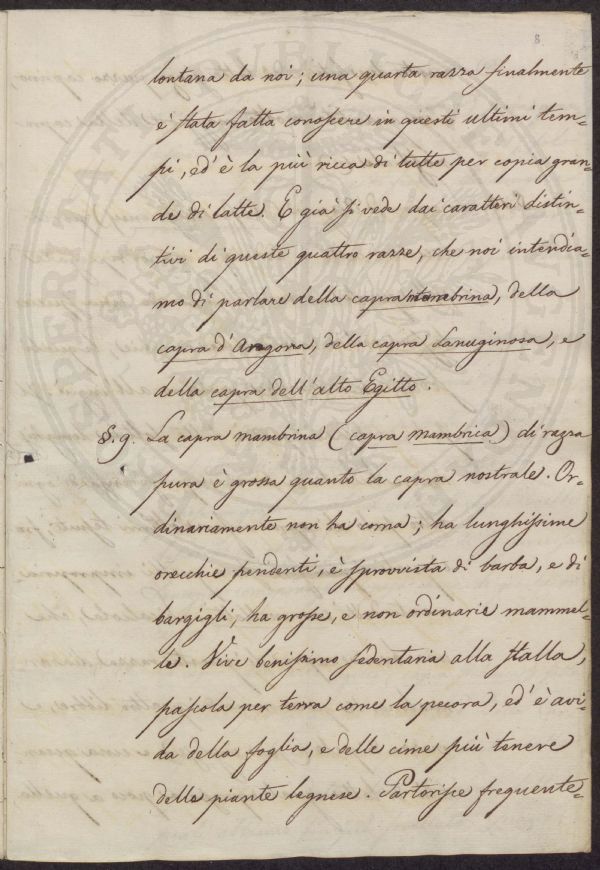 8
lontana da noi; una quarta razza finalmente
è stata fatta conoscere in questi ultimi tem=
pi, ed' è la più ricca di tutte per copia gran=
de di latte. E già si vede dai caratteri distin=
tivi di queste quattro razze, che noi intendia=
mo di parlare della capra mambrina, della
capra d'Angora, della capra Lanuginosa, e
della capra dell'alto Egitto.
§. 9. La capra mambrina (capra mambrica) di razza
pura è grossa quanto la capra nostrale. Or=
dinariamente non ha corna; ha lunghissime
orecchie pendenti, è sprovvista di barba, e di
bargigli, ha grosse, e non ordinarie mammel=
le. Vive benissimo sedentaria alla stalla,
pascola per terra come la pecora, ed' è avi=
da della foglia, e delle cime più tenere
delle piante legnese. Partorisce frequente=